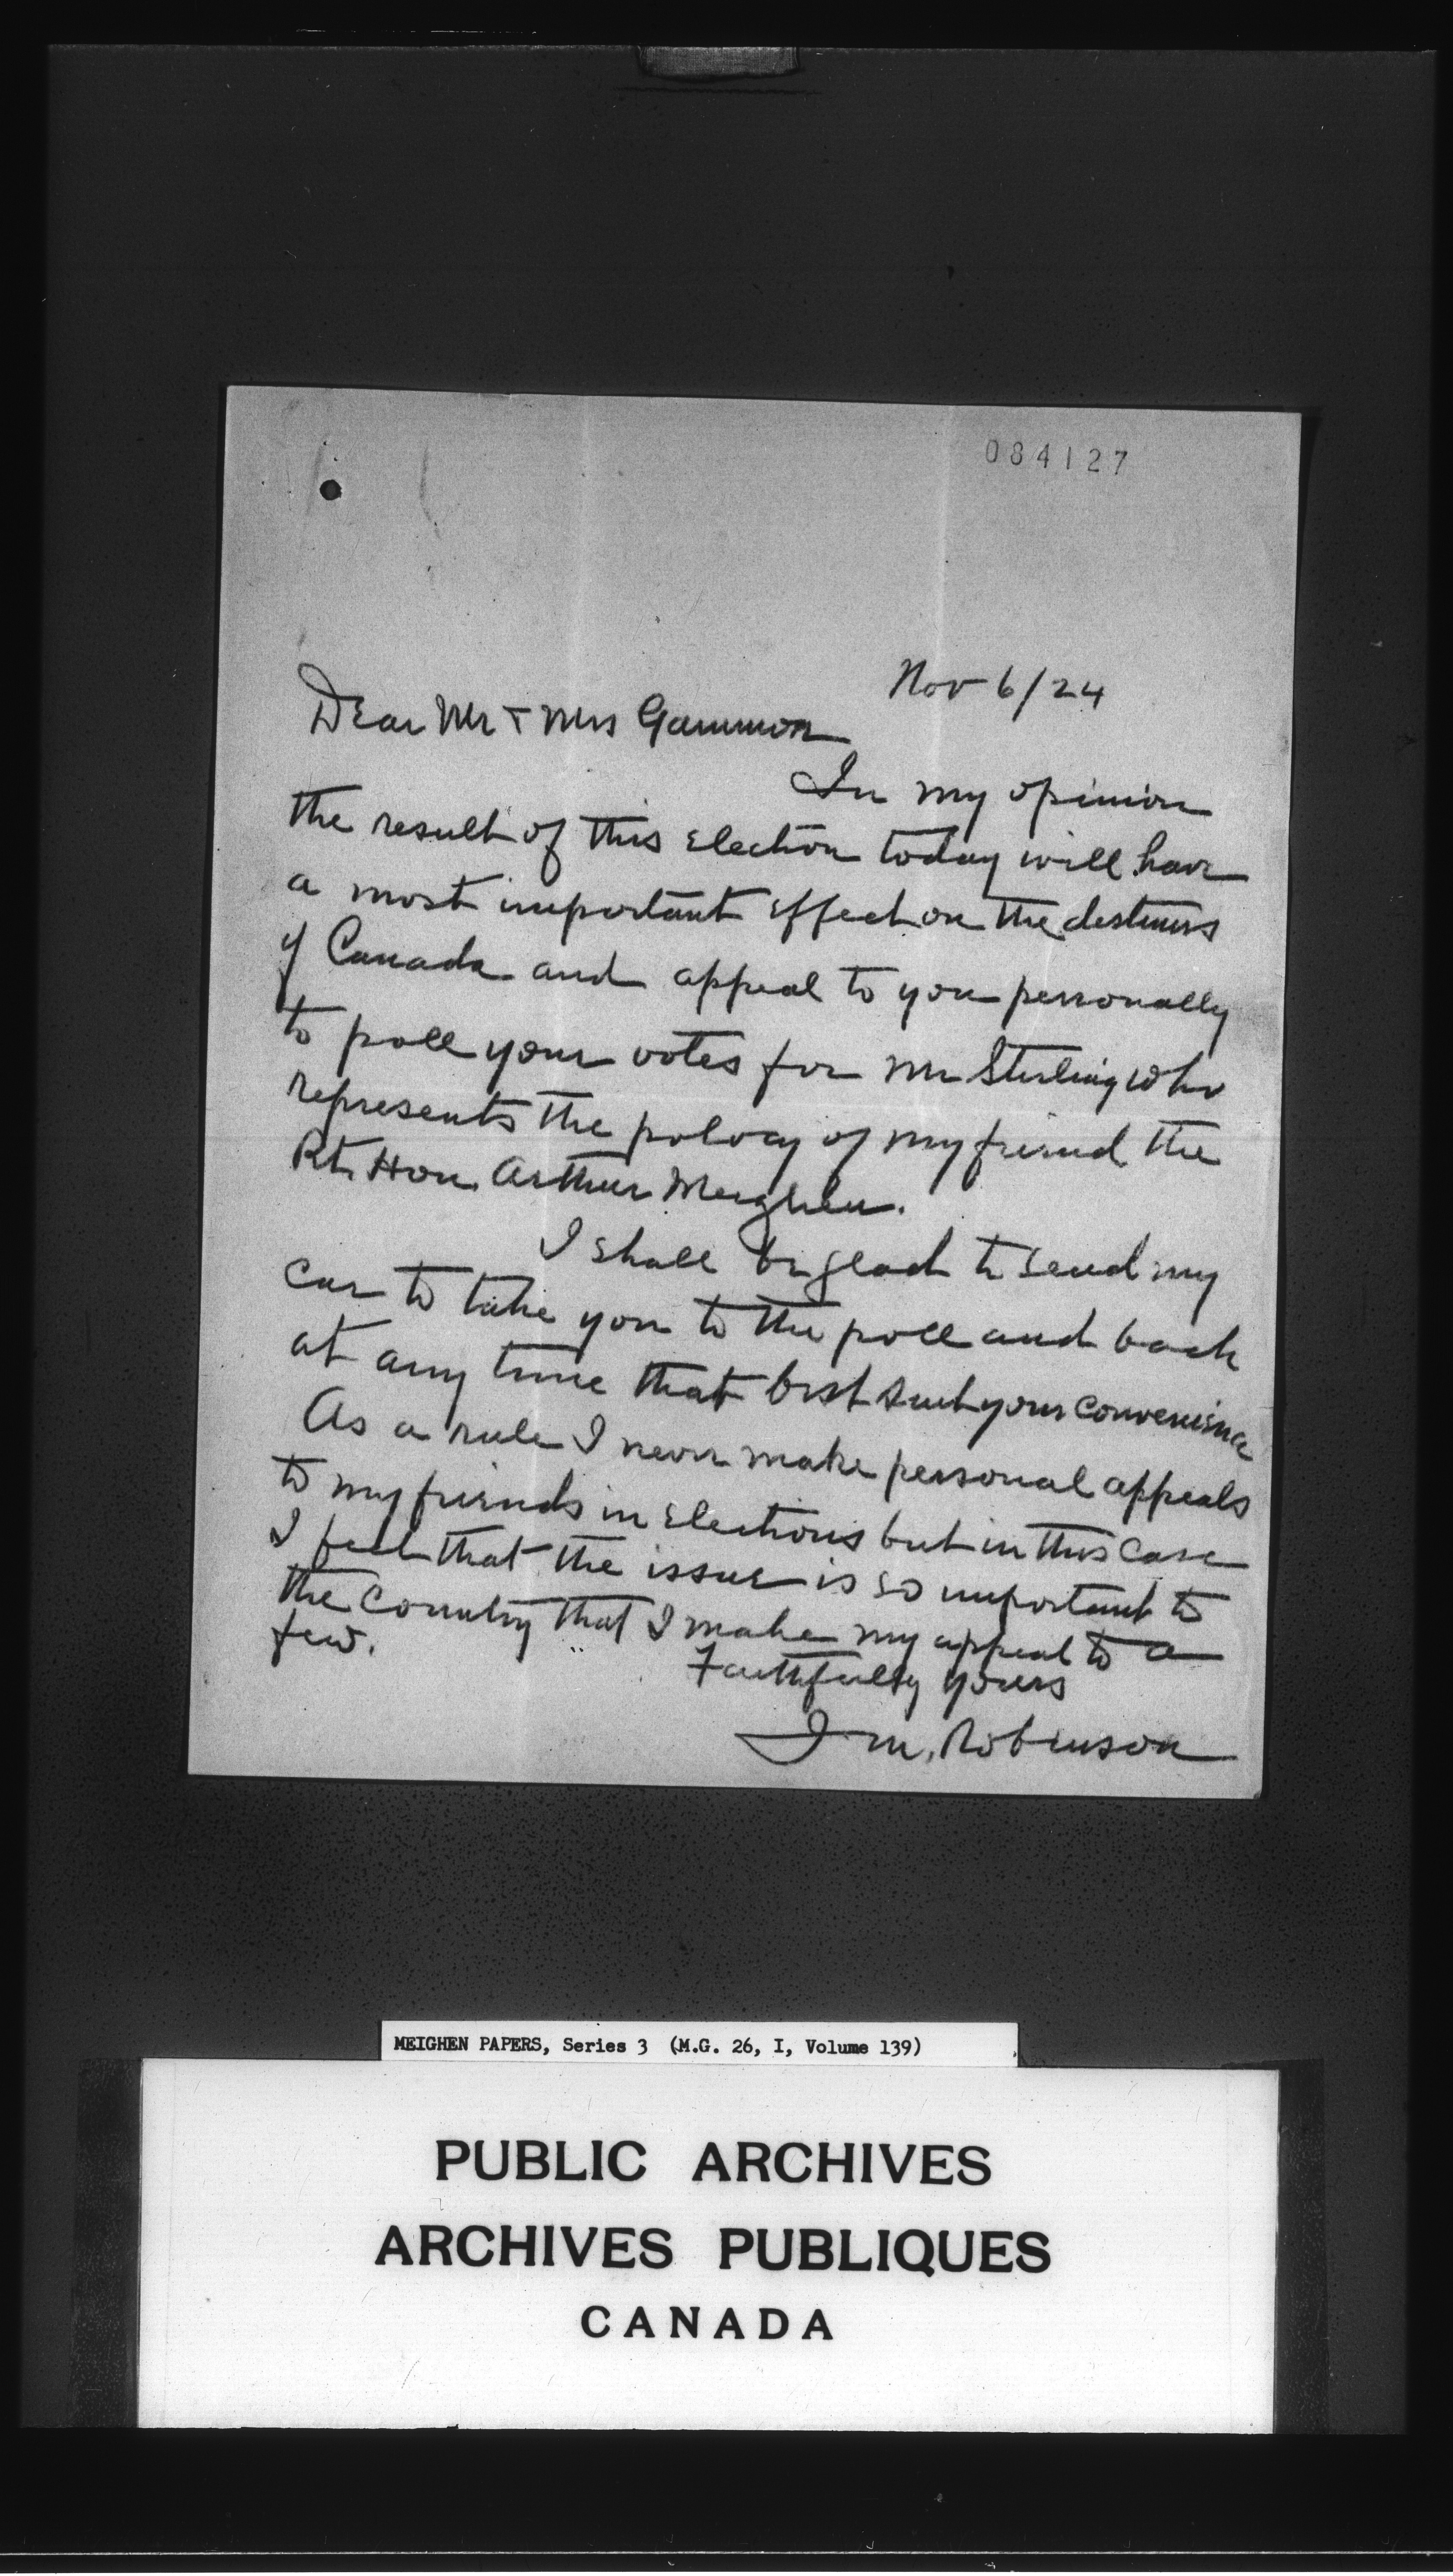 084127
Nov 6/24
Dear Mr + Mrs Gammon
In my opinion
the result of this election today will have
a most important effect on the destinies
of Canada and appeal to you personally
to poll your votes for Mr Sterling who
represents the policy of my friend the
Rt. Hon. Arthur Meighen.
I shall be glad to send my
car to take you to the poll and back
at any time that best suit your convenience
As a rule I never make personal appeals
to my friends in elections but in this case
I feel that the issue is so important to
the country that I make my appeal to a
few.
Faithfully yours
J. M. Robinson
MEIGHEN PAPERS, Series 3 (M.G. 26, I, Volume 139)
PUBLIC ARCHIVES
ARCHIVES PUBLIQUES
CANADA